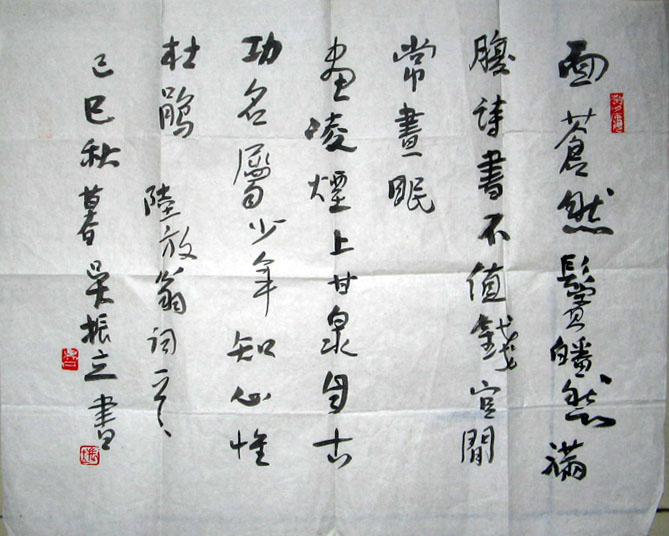 面蒼然鬢皤然滿
腹詩書不值錢官閒
常晝眠
畫凌煙上甘泉自古
功名屬少年知心惟
杜鵑
陸放翁詞一
己巳秋暮吳振立書